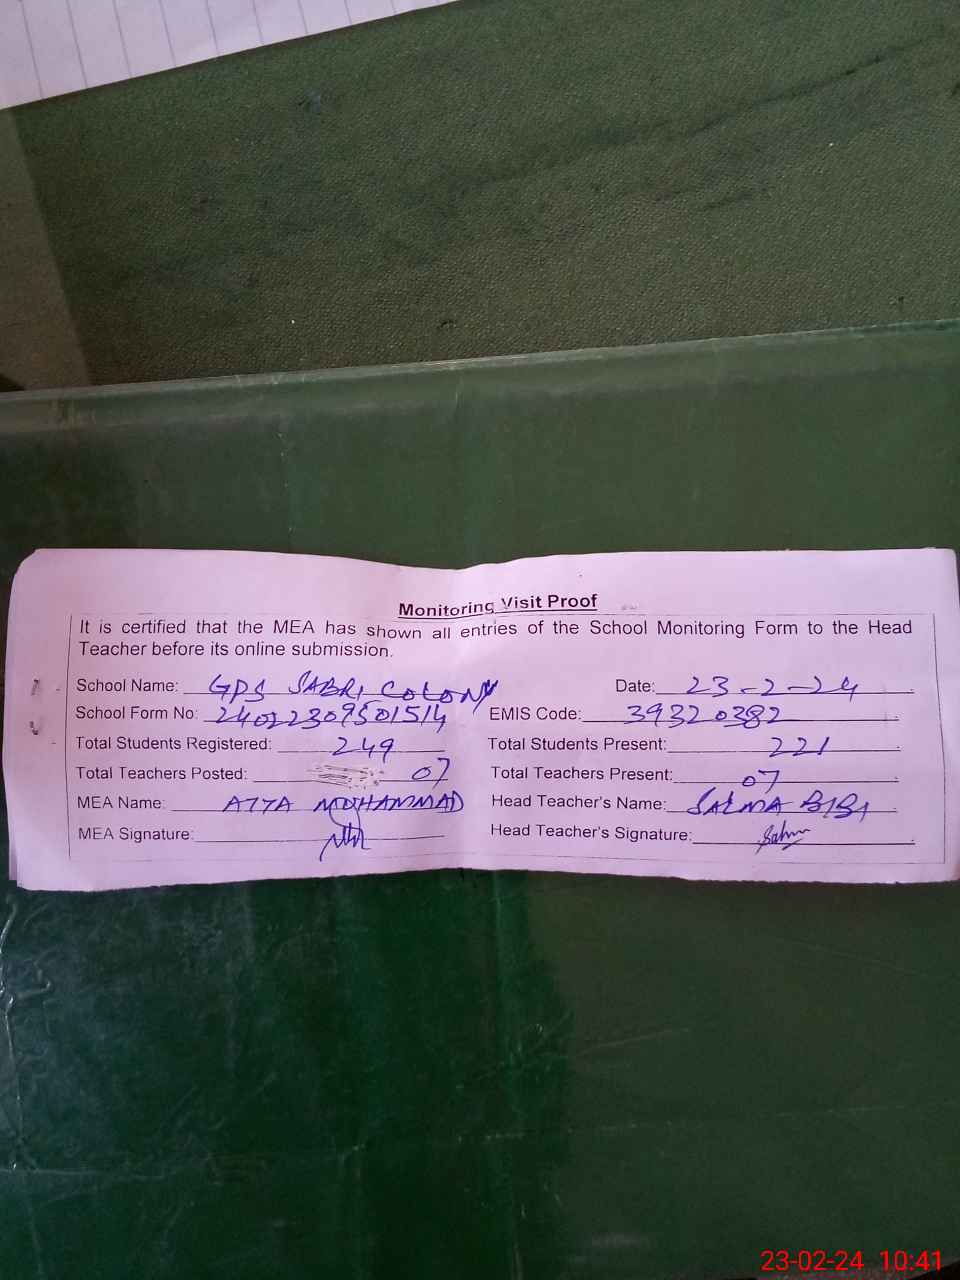 Monitoring Visit Proof
It is certified that the MEA has shown all entries of the School Monitoring Form to the Head
Teacher before its online submission.
School Name: GPS SABRI COLONY Date: 23-2-24
School Form No: 24022309501514 EMIS Code: 39320382
Total Students Registered: 249 Total Students Present: 221
Total Teachers Posted: 07 Total Teachers Present: 07
MEA Name: ATTA MOHAMMAD Head Teacher's Name: SALMA BIBI
MEA Signature: Head Teacher's Signature: Salma
23-02-24 10:41